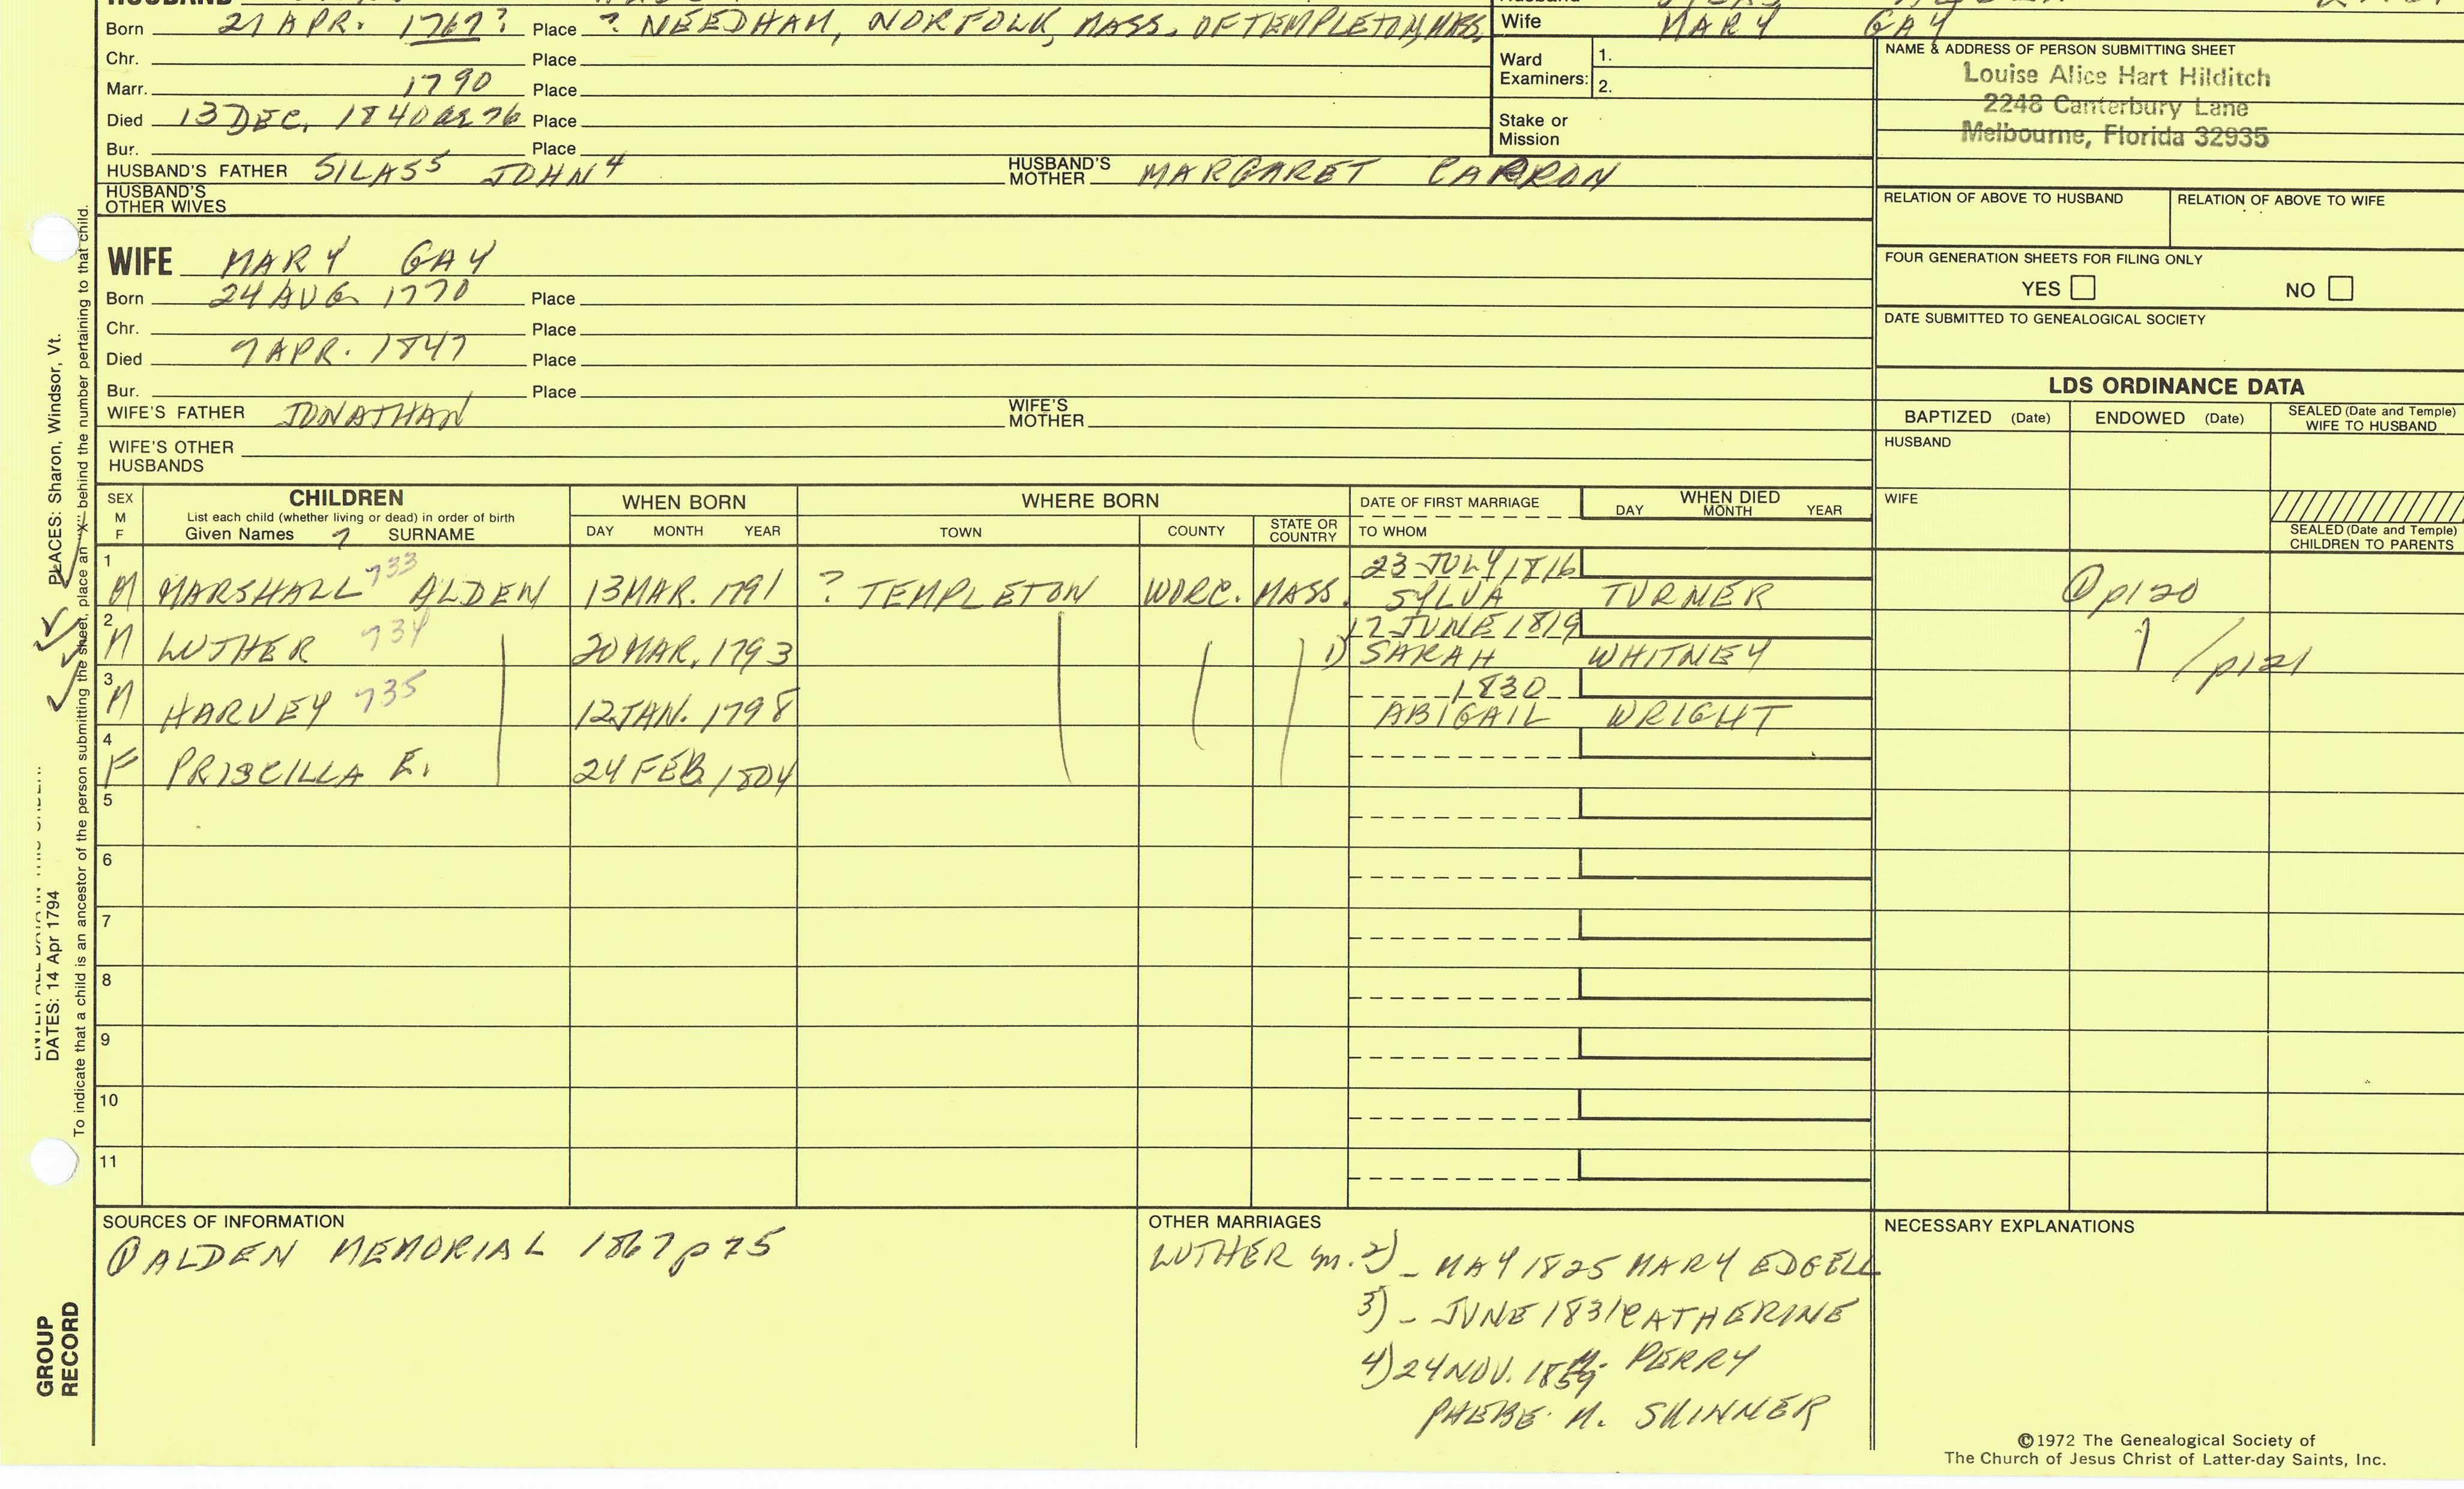 Born 21 APR. 1767? Place ? NEEDHAM, NORFOLK, MASS. OF TEMPLETON, MASS.
Wife MARY GAY
Chr. Place
Marr. 1790 Place
Died 13 DEC. 1840 Place
Bur. Place
Ward
Examiners: 1.
2.
Stake or
Mission
NAME & ADDRESS OF PERSON SUBMITTING SHEET
Louise Alice Hart Hilditch
2248 Canterbury Lane
Melbourne, Florida 32935
HUSBAND'S FATHER SILAS5 JOHN4 HUSBAND'S MOTHER MARGARET
HUSBAND'S
OTHER WIVES
RELATION OF ABOVE TO HUSBAND RELATION OF ABOVE TO WIFE
WIFE MARY GAY
Born 24 AUG 1770 Place
Chr. Place
Died 7 APR. 1847 Place
Bur. Place
WIFE'S FATHER JONATHAN WIFE'S MOTHER
WIFE'S OTHER
HUSBANDS
FOUR GENERATION SHEETS FOR FILING ONLY
YES NO
DATE SUBMITTED TO GENEALOGICAL SOCIETY
LDS ORDINANCE DATA
BAPTIZED (Date) ENDOWED (Date) SEALED (Date and Temple)
WIFE TO HUSBAND
HUSBAND
WIFE
SEALED (Date and Temple)
CHILDREN TO PARENTS
SEX
M
F
CHILDREN
List each child (whether living or dead) in order of birth
Given Names 7 SURNAME
WHEN BORN
DAY MONTH YEAR
WHERE BORN
TOWN COUNTY STATE OR
COUNTRY
DATE OF FIRST MARRIAGE
TO WHOM
WHEN DIED
DAY MONTH YEAR
1 23 JULY 1816
M MARSHALL 733 ALDEN 13 MAR. 1791 ? TEMPLETON WORC. MASS. SYLVA TURNER ① p120
2 17 JUNE 1819
M LUTHER 734 20 MAR. 1793 1) SARAH WHITNEY 1 / p121
3 1830
M HARVEY 735 12 JAN. 1798 ABIGAIL WRIGHT
4
F PRISCILLA E. 24 FEB 1804
5
6
7
8
9
10
11
SOURCES OF INFORMATION
① ALDEN MEMORIAL 1867 p 75
OTHER MARRIAGES
LUTHER m. 2) - MAY 1825 MARY EDGELL
3) - JUNE 1831 CATHERINE
M. PERRY
4) 24 NOV. 1859
PHEBE M. SKINNER
NECESSARY EXPLANATIONS
©1972 The Genealogical Society of
The Church of Jesus Christ of Latter-day Saints, Inc.
PLACES: Sharon, Windsor, Vt.
DATES: 14 Apr 1794
To indicate that a child is an ancestor of the person submitting the sheet, place an "X" behind the number pertaining to that child.
GROUP
RECORD